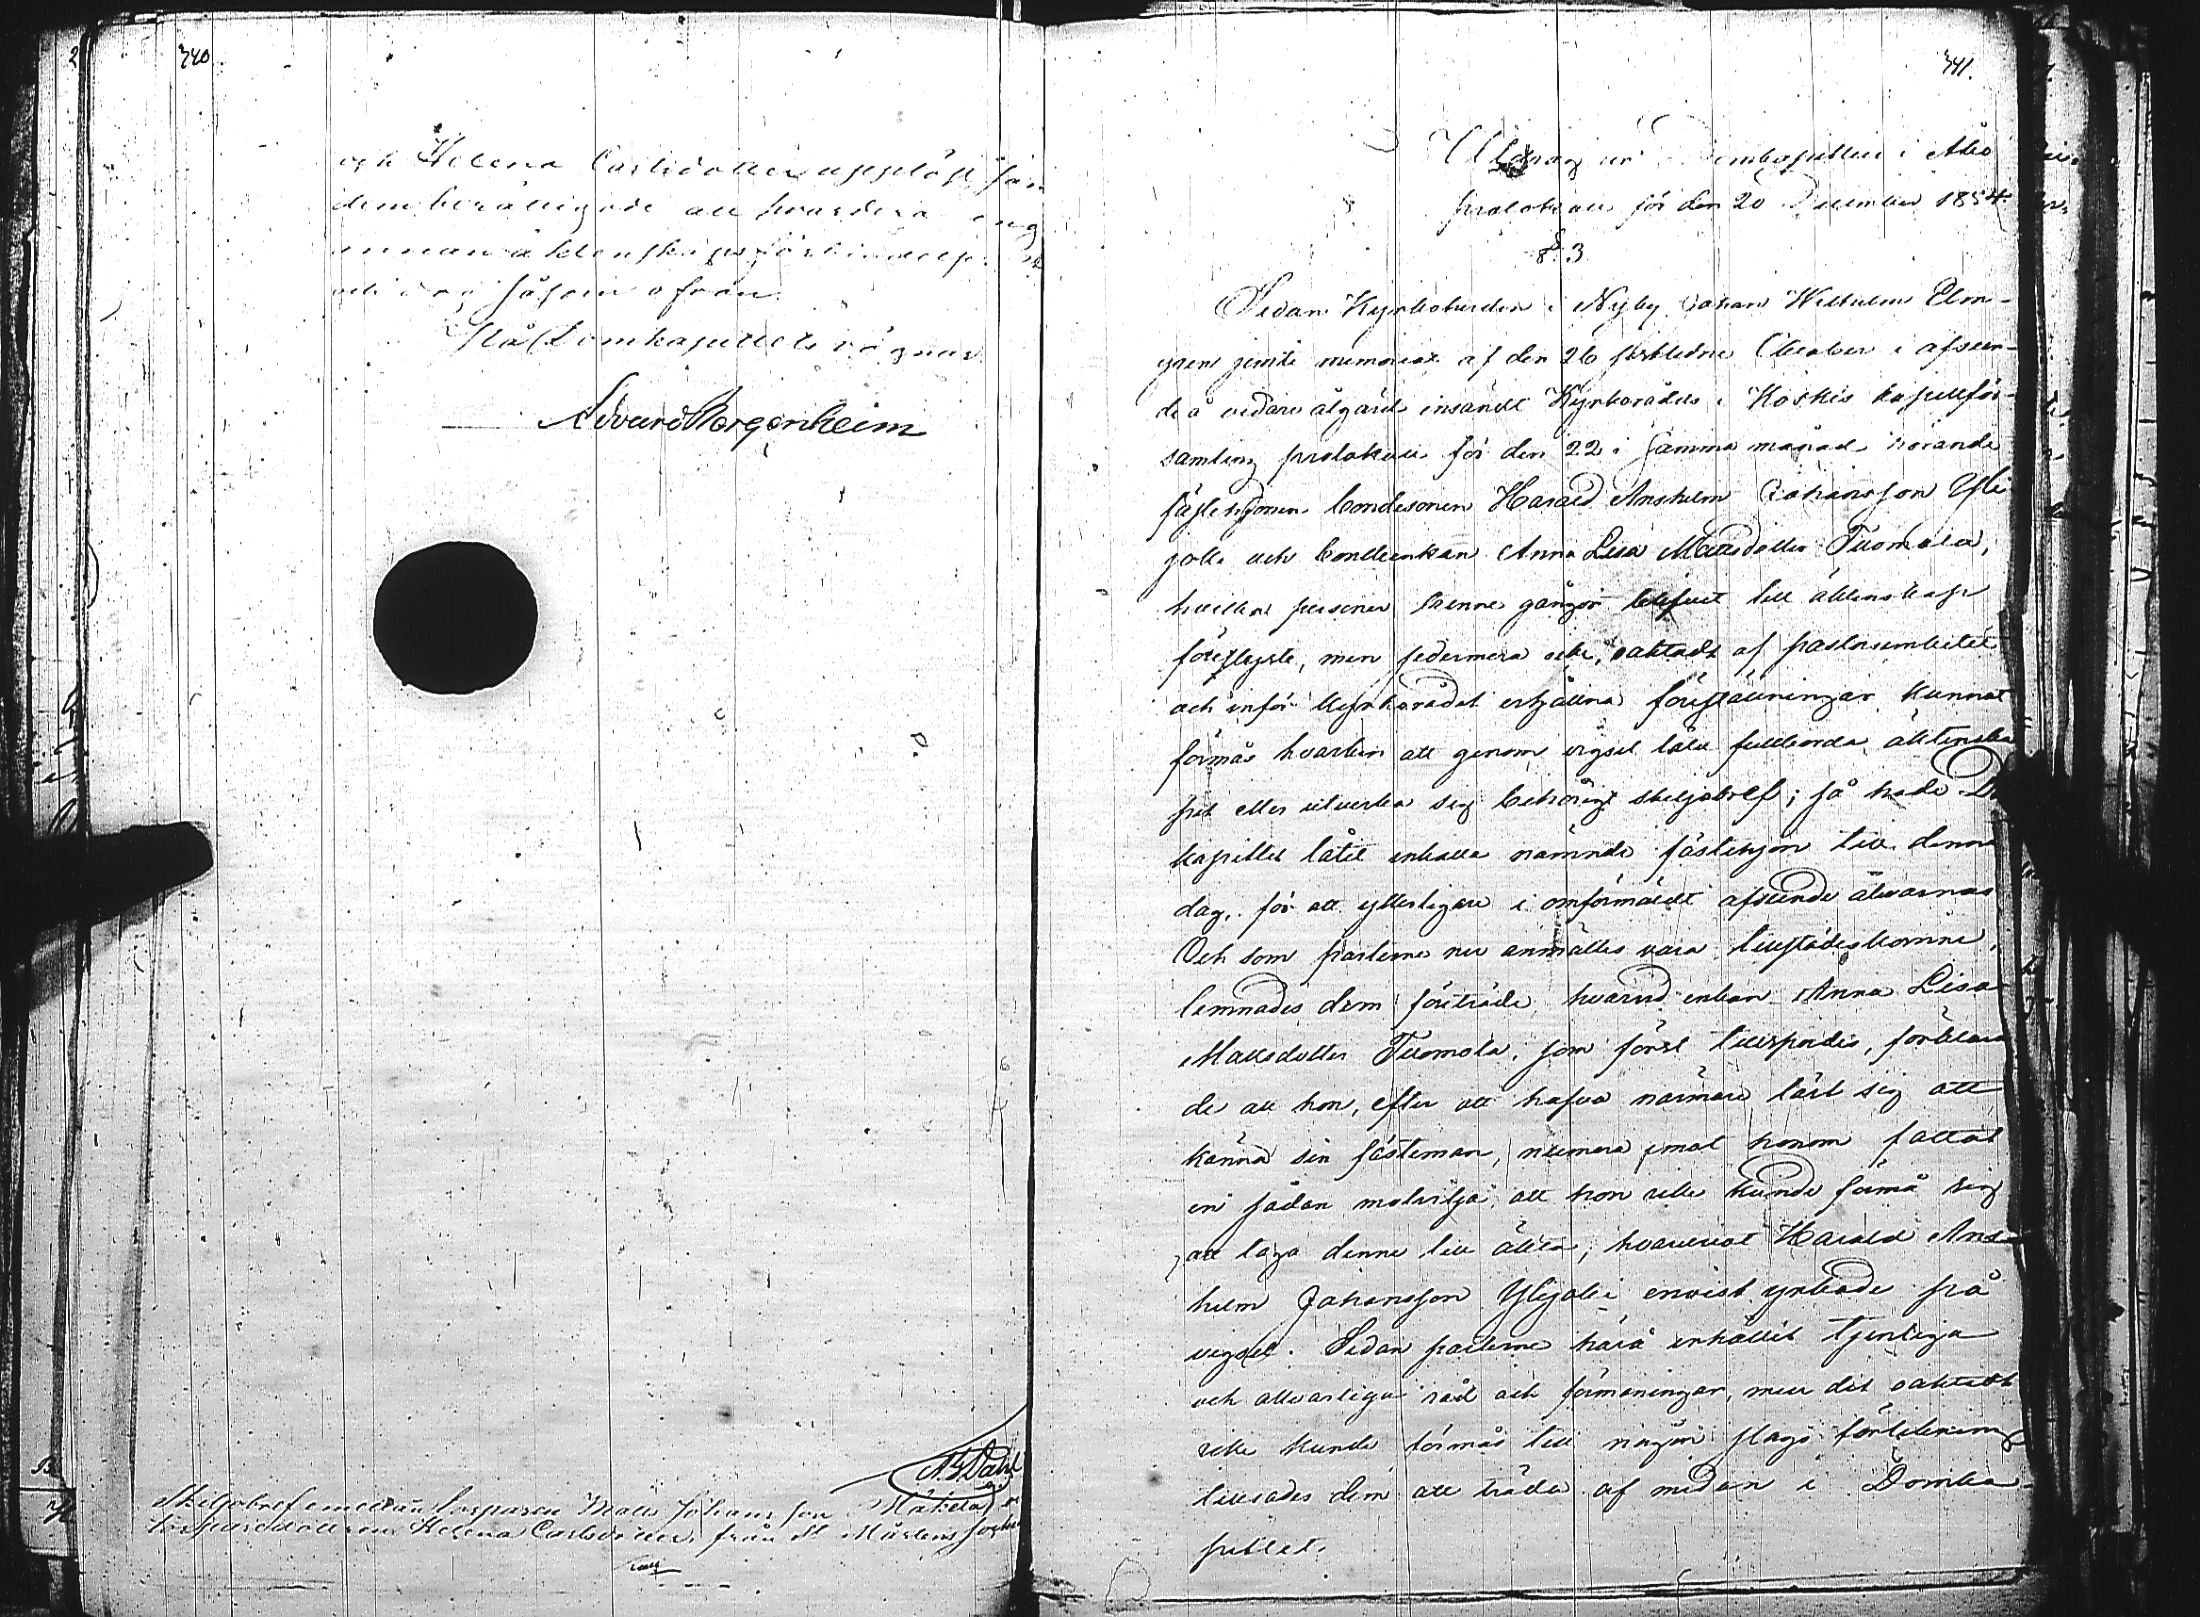 740
och Helena Carlsdotter upplöst samt
dem berättigade att hvardera ingå
annan äktenskapsförbindelse.
och dag såsom ofvan.
På Domkapitlets vägnar
Edvard Bergenheim
A G Dahl
Skiljobref emellan torparen Matts Johansson Mäkelä och
torparedottren Helena Carlsdotter från St Mårtens socken
741.
Utdrag ur Domkapitlets i Åbo
protokoll för den 20 December 1854.
§. 3
Sedan Kyrkoherden i Nykyrko Johan Wilhelm Elm-
gren jemte memorial af den 26 sistledne October i afseen-
de å vidare åtgärd insändt Kyrkorådets i Koskis kapellför-
samling protokoll för den 22 i samma månad rörande
fästehjonen bondesonen Harald Anshelm Johansson Yli
joki och bondeenkan Anna Lisa Mattsdotter Tuomola,
hvilka personer trenne gångor blifvit till äktenskap
förelyste, men sedermera icke, oaktadt af pastorsembetet
och inför Kyrkorådet erhållna föreställningar kunnat
förmås hvarken att genom vigsel låta fullborda äktenska
pet eller utverka sig behörigt skiljobref; så hade Dom
kapitlet låtit inkalla nämnde fästehjon till denna
dag, för att ytterligare i omförmäldt afseende åtvarnas
Och som parterne nu anmältes vara tillstädeskomne,
lemnades dem företräde, hvarvid enkan Anna Lisa
Mattsdotter Tuomola, som först tillspordes, förklara
de att hon, efter att hafva närmare lärt sig att
känna sin fästeman, numera emot honom fattat
en sådan motvilja, att hon icke kunde förmå sig
att taga denne till äkta, hvaremot Harald Ans-
helm Johansson Ylijoki envist yrkade på
vigsel. Sedan parterne härå erhållit tjenliga
och allvarliga råd och förmaningar, men det oaktadt
icke kunde förmås till någon slags förlikning
tillsades dem att träda af medan i Domka-
pitlet.